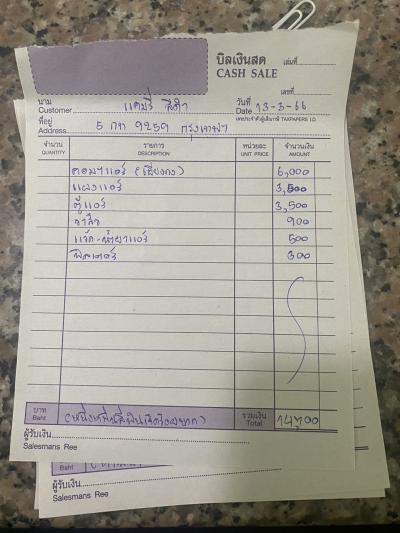 บิลเงินสด เล่มที่
CASH SALE
เลขที่
นาม
Customer แคมรี่ สีดำ วันที่ Date 13-3-66
ที่อยู่ เลขประจำตัวผู้เสียภาษี TAXPAPERS I.D.
Address 5 กท 9259 กรุงเทพฯ
จำนวน รายการ หน่วยละ จำนวนเงิน
QUANTITY DESCRIPTION UNIT PRICE AMOUNT
คอมฯแอร์ (เซียงกง) 6,000
แผงแอร์ 3,500
ตู้แอร์ 3,500
วาล์ว 900
แว็ค-น้ำยาแอร์ 500
ฟิลเตอร์ 300
บาท (หนึ่งหมื่นสี่พันเจ็ดร้อยบาท) รวมเงิน
Baht Total 14,700
ผู้รับเงิน
Salesmans Ree
Baht
ผู้รับเงิน
Salesmans Ree